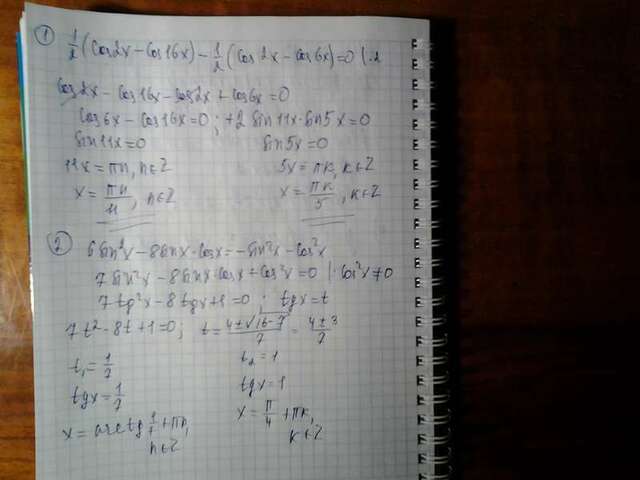 ① 1/2 (Cos2x - Cos16x) - 1/2 (Cos2x - Cos6x) = 0 |·2
Cos2x - Cos16x - Cos2x + Cos6x = 0
Cos6x - Cos16x = 0 ; +2 Sin11x · Sin5x = 0
Sin11x = 0 Sin5x = 0
11x = πn, n∈Z 5x = πk, k∈Z
x = πn/11, n∈Z x = πk/5, k∈Z
② 6 Sin²x - 8Sinx·Cosx = -Sin²x - Cos²x
7 Sin²x - 8Sinx·Cosx + Cos²x = 0 |: Cos²x ≠ 0
7 tg²x - 8tgx + 1 = 0 ; tgx = t
7t² - 8t + 1 = 0 ; t = (4±√(16-7))/7 = (4±3)/7
t₁ = 1/7 t₂ = 1
tgx = 1/7 tgx = 1
x = arctg 1/7 + πn, x = π/4 + πk,
n∈Z k∈Z